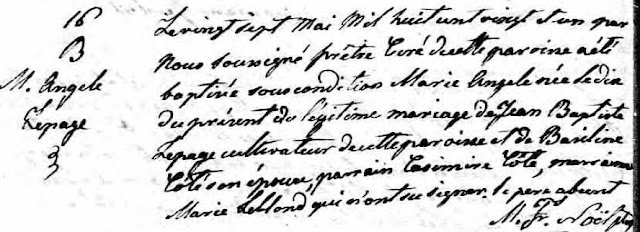 16
B
M. Angele
Lepage
Le vingt sept Mai Mil huit cent vingt et un par
Nous soussigné prêtre Curé de cette paroisse a été
baptisée sous condition Marie Angele née le dix
du présent du légitime mariage de Jean Baptiste
Lepage cultivateur de cette paroisse et de Basiline
Côté son épouse, parrain Casimire Côté, marraine
Marie Leblond qui n'ont su signer. le pere absent
M. Fs. Noël ptre